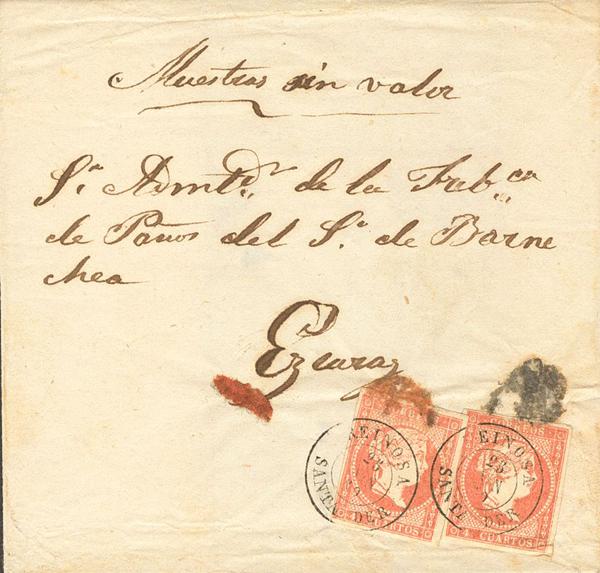 Muestras sin valor
Sr. Admtdr. de la Fabca
de Paños del Sr. de Barne
chea
Ezcaray
REINOSA
23
SANTANDER
EINOSA
23
SANT DER
CUARTOS
4 CUARTOS